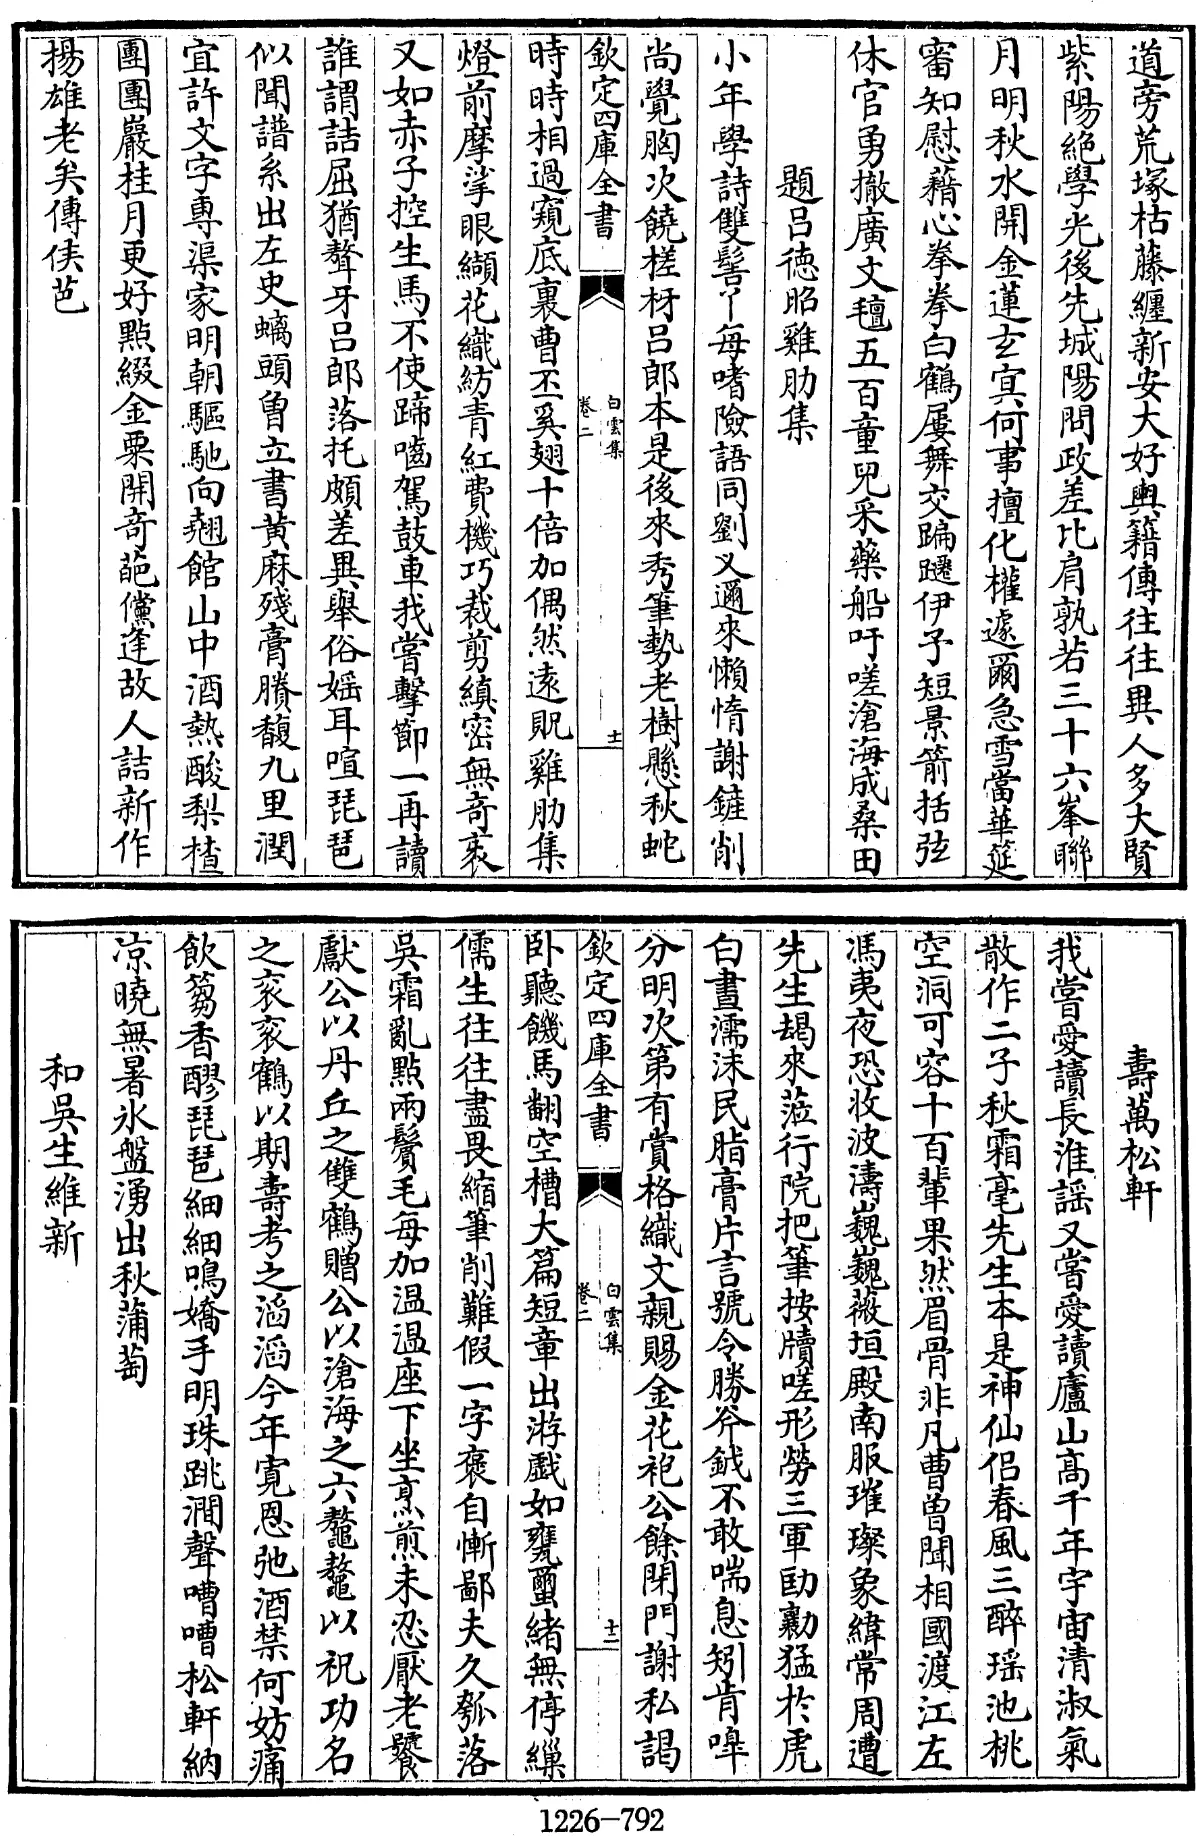 道旁荒塚枯藤纏新安大好輿籍傳往往異人多大賢
紫陽絶學光後先城陽問政差比肩孰若三十六峯聯
月明秋水開金蓮玄㝠何事擅化權遽爾急雪當華筵
審知慰藉心拳拳白鶴屢舞交蹁躚伊予短景箭括弦
休官勇撤廣文氊五百童兒采藥船吁嗟滄海成桑田
題吕德昭雞肋集
小年學詩雙髻丫每嗜險語同劉义邇來懶惰謝鏟削
尚覺胸次饒槎枒吕郎本是後來秀筆勢老樹懸秋蛇
欽定四庫全書
白雲集
卷二
十一
時時相過窺底裏曹丕奚翅十倍加偶然逺貺雞肋集
燈前摩挲眼纈花織紡青紅費機巧裁剪縝密無奇衺
又如赤子控生馬不使蹄嚙駕鼓車我嘗擊節一再讀
誰謂詰屈猶聱牙吕郎落托頗差異舉俗婬耳喧琵琶
似聞譜系出左史螭頭曽立書黄麻殘膏賸馥九里潤
宜許文字専渠家明朝驅馳向翹館山中酒熱酸梨楂
團團巖桂月更好點綴金粟開奇葩儻逢故人詰新作
揚雄老矣傳侯芭
壽萬松軒
我嘗愛讀長淮謡又嘗愛讀廬山髙千年宇宙清淑氣
散作二子秋霜毫先生本是神仙侣春風三醉瑶池桃
空洞可容十百輩果然眉骨非凡曹曽聞相國渡江左
馮夷夜恐收波濤巍巍薇垣殿南服璀璨象緯常周遭
先生朅來蒞行院把筆按牘嗟形勞三軍勛勷猛於虎
白晝濡沬民脂膏片言號令勝斧鉞不敢喘息矧肯嘷
分明次第有賞格織文親賜金花袍公餘閉門謝私謁
欽定四庫全書
白雲集
卷二
十二
卧聽饑馬翻空槽大篇短章出游戯如甕蠒緒無停繅
儒生往往盡畏縮筆削難假一字褒自慚鄙夫久瓠落
吳霜亂點兩鬢毛每加温温座下坐烹煎未忍厭老饕
獻公以丹丘之雙鶴贈公以滄海之六鼇鼇以祝功名
之衮衮鶴以期壽考之滔滔今年寛恩弛酒禁何妨痛
飲蒭香醪琵琶細細鳴嬌手明珠跳澗聲嘈嘈松軒納
凉曉無暑氷盤湧出秋蒲萄
和吳生維新
1226-792